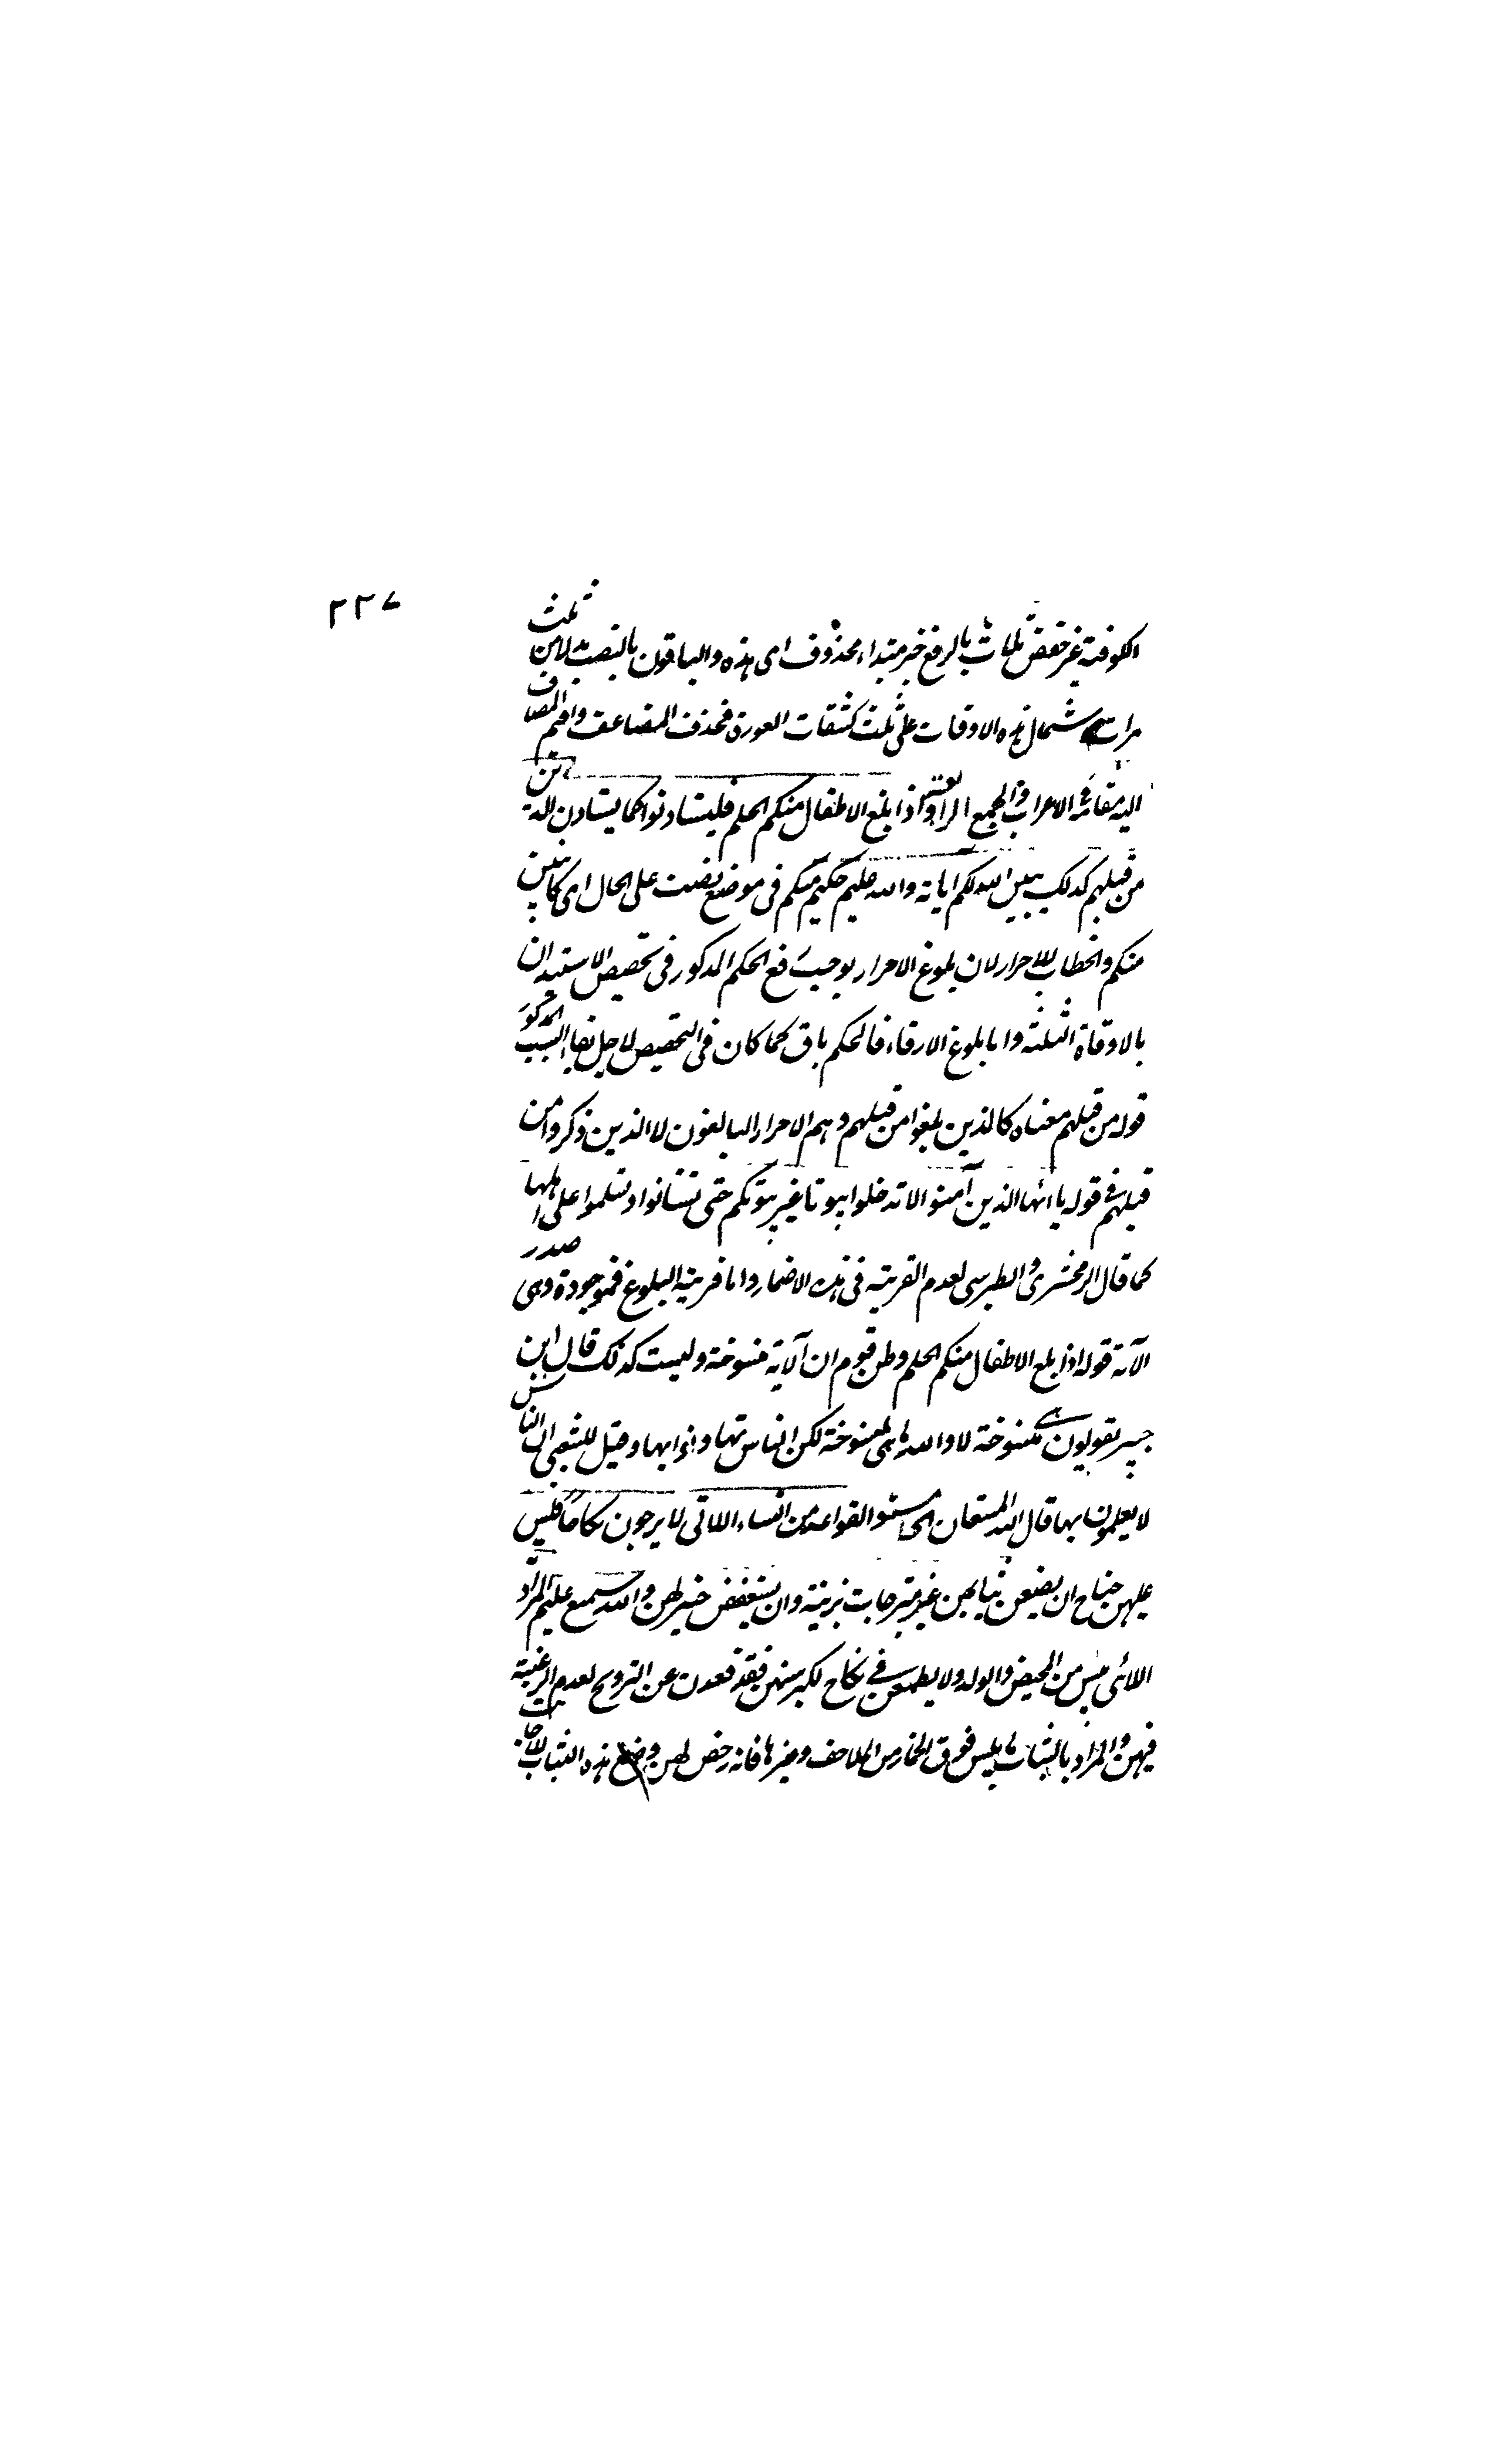 ٢٣٧
الكوفة غير حفص ثلثات بالرفع خبر مبتداء محذوف اى هذه والباقون بالنصب بدلا من ثلث
مرات لاشتمال هذه الاوقات على ثلث كشفات العورة فحذف المضاعف واقيم المضاف
اليه مقامه فى الاعراب واذا بلغ الاطفال منكم الحلم فليستاذنوا كما يستاذن الذين
من قبلهم كذلك يبين الله لكم اياته والله عليم حكيم منكم فى موضع نصب على الحال اى كائنين
منكم والخطاب للاحرار لان بلوغ الاحرار يوجب رفع الحكم المذكور فى تخصيص الاستيذان
بالاوقاة الثلثة واما بلوغ الارقاء فالحكم باق كما كان فى التخصيص لاجل بقاء السبب المذكور
قوله من قبلهم معناه كالذين بلغوا من قبلهم وهم الاحرار البالغون لا الذين ذكروا من
قبلهم فى قوله يا ائها الذين آمنوا لا تدخلوا بيوتا غير بيوتكم حتى تستانسوا وتسلموا على اهلها
كما قال الزمخشرى والطبرسى لعدم القرينة فى هذه الاضمار واما قرينة البلوغ فموجودة وهى صدر
الآية قوله اذا بلغ الاطفال منكم الحلم وظن قوم ان الآية منسوخة وليست كذلك قال ابن
جبير يقولون هى منسوخة لا والله ما هى بمنسوخة لكن الناس تهاونوا بها وقيل للشعبى ان الناس
لا يعلمون بها قال الله المستعان والقواعد من النساء اللاتى لا يرجون نكاحا فليس
عليهن جناح ان يضعن ثيابهن غير متبرجات بزينة وان يستعففن خير لهن والله سميع عليم المراد
اللائى يئسن من الحيض والولد ولا يطمعن فى نكاح لكبر سنهن فقد قعدن عن التزويج لعدم الرغبة
فيهن والمراد بالثياب ما يلبس فوق الخمار من الملاحف وغيرها فانه رخص لهن وضع هذه الثياب